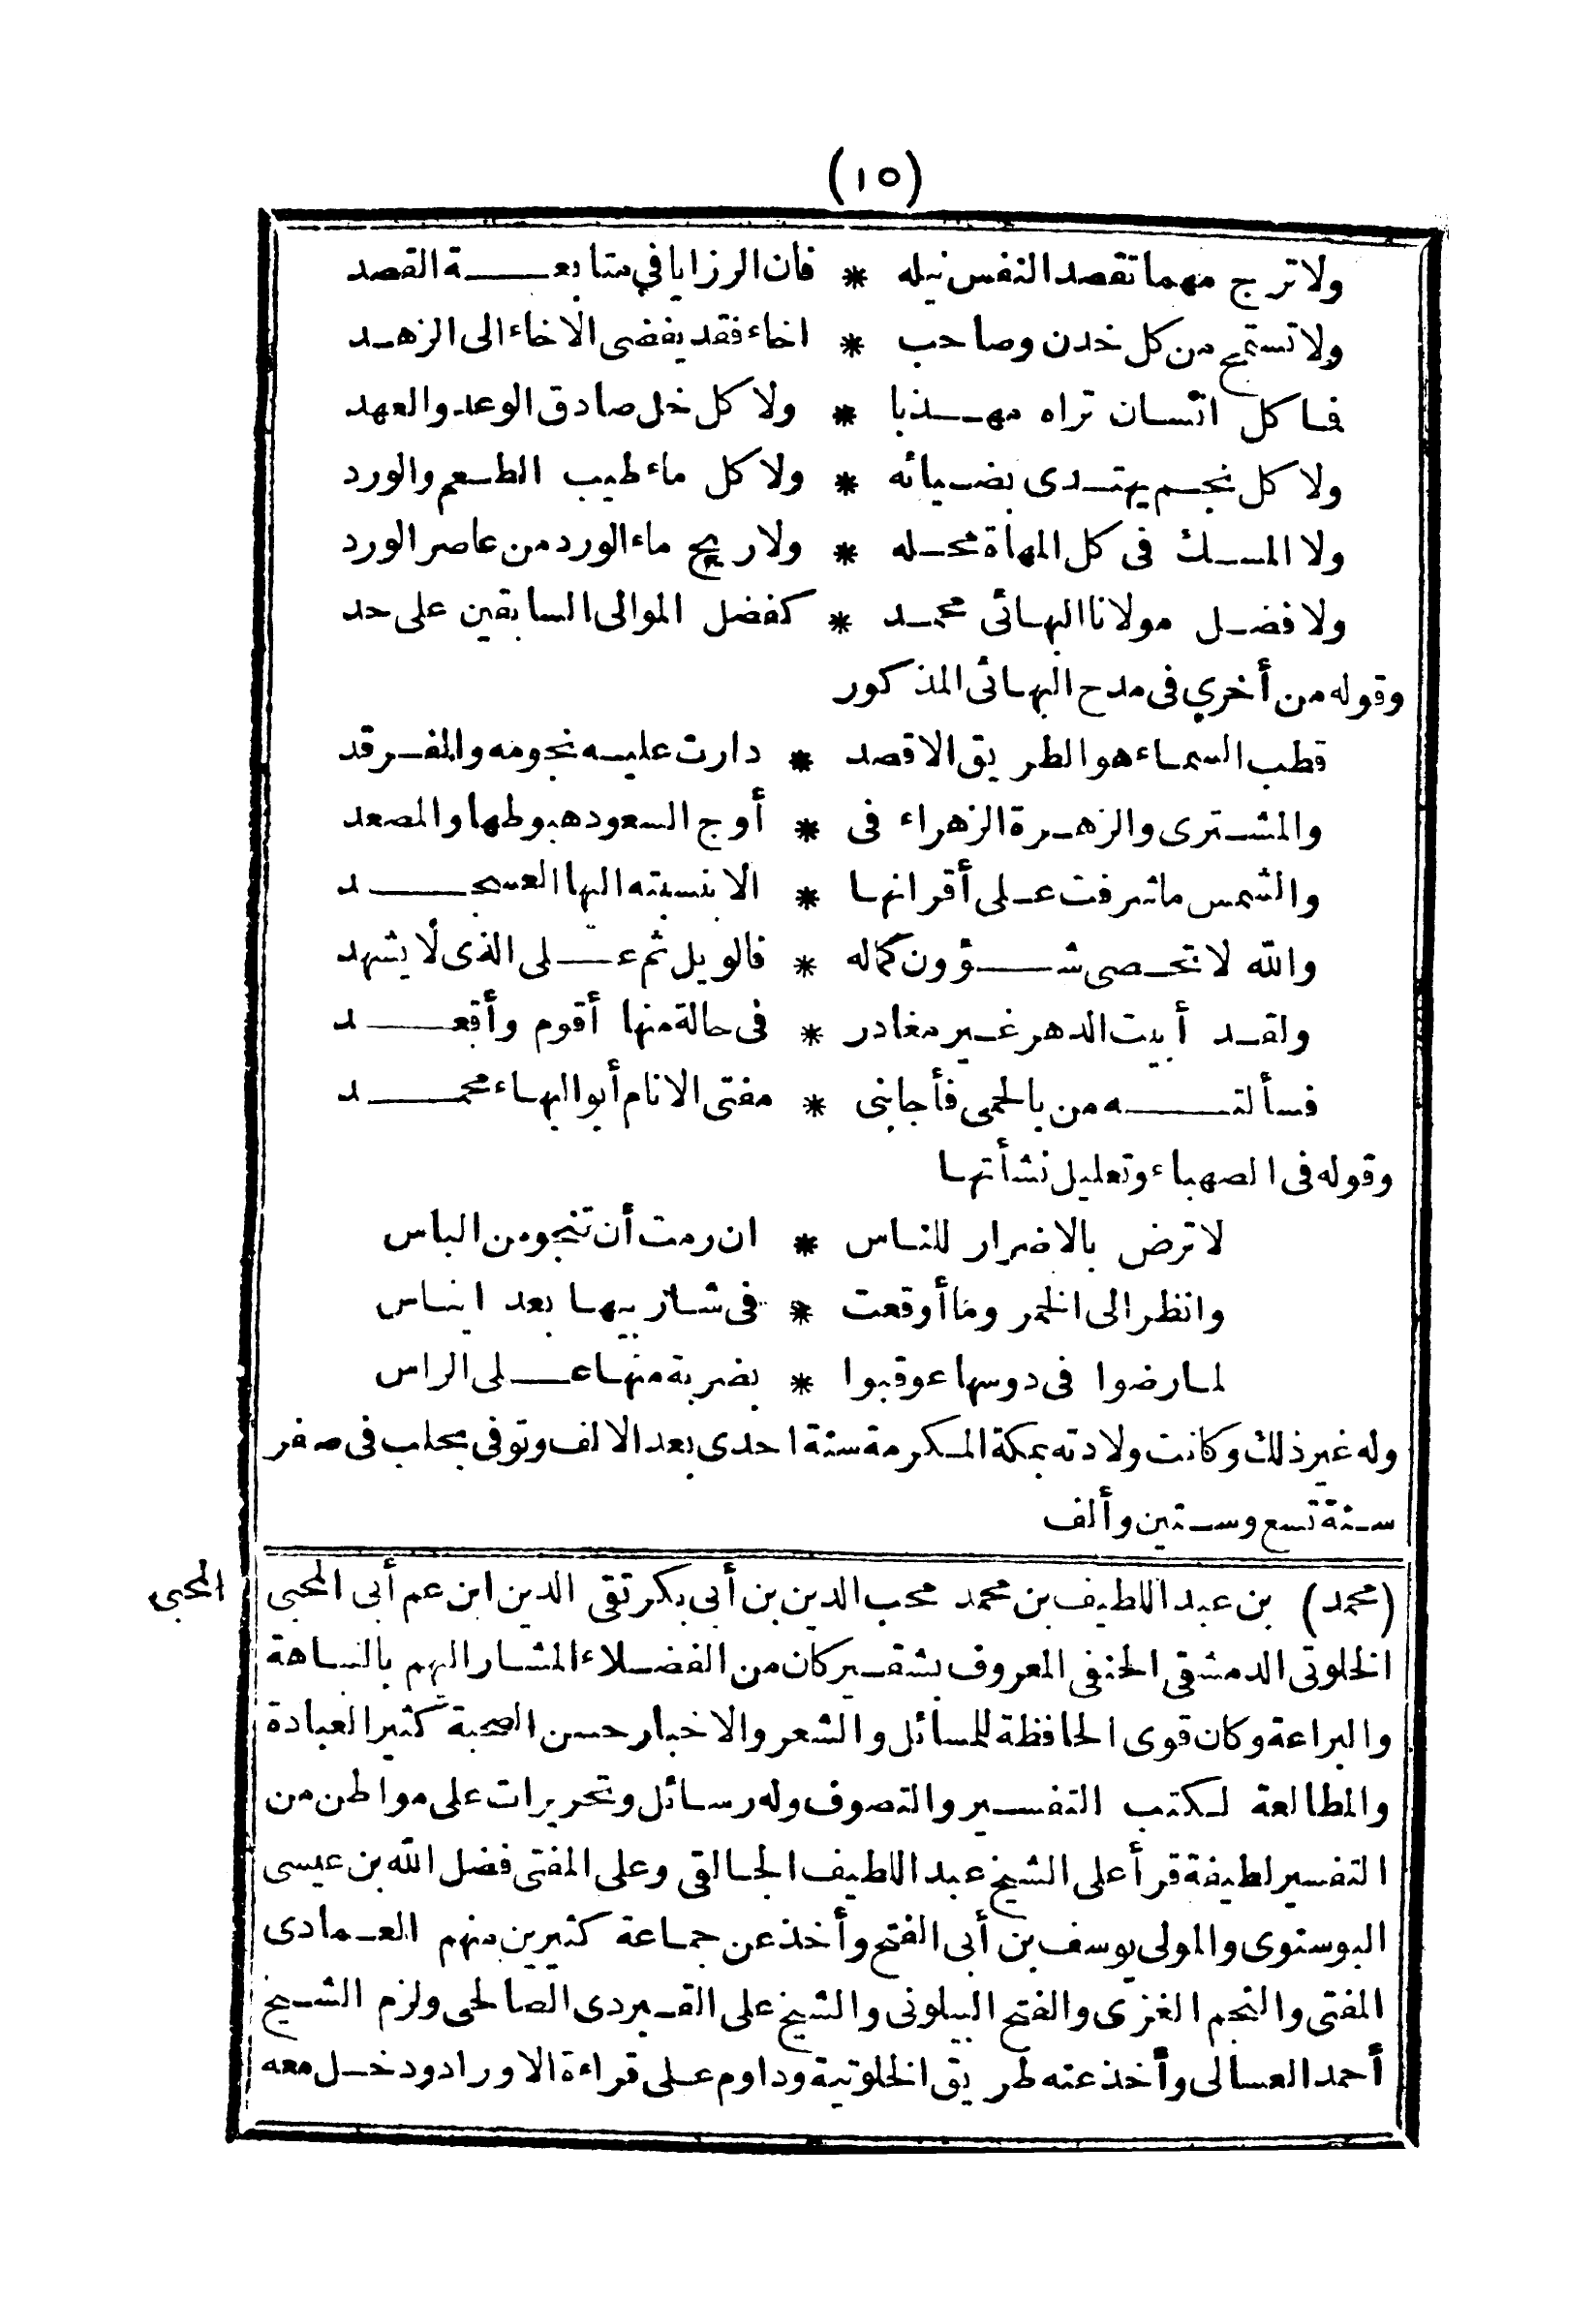 (١٥)
ولا ترج مهما تقصد النفس نيله * فان الرزايا في متابعة القصد
ولا تستمح من كل خدن وصاحب * اخاء فقد يفضى الاخاء الى الزهد
فما كل انسان تراه مهذبا * ولا كل خل صادق الوعد والعهد
ولا كل نجم يهتدى بضيائه * ولا كل ماء طيب الطعم والورد
ولا المسك فى كل المهاة محله * ولا ريح ماء الورد من عاصر الورد
ولا فضل مولانا البهائى محمد * كفضل الموالى السابقين على حد
وقوله من أخري فى مدح البهائى المذكور
قطب السماء هو الطريق الاقصد * دارت عليه نجومه والفرقد
والمشترى والزهرة الزهراء فى * أوج السعود هبوطها والمصعد
والشمس ما شرفت على أقرانها * الا بنسبته اليها العسجد
والله لا تحصى شؤون كماله * فالويل ثم على الذى لا يشهد
ولقد أبيت الدهر غير مغادر * فى حالة منها أقوم وأقعد
فسألته من بالحمى فأجابنى * مفتى الانام أبو البهاء محمد
وقوله فى الصهباء وتعليل نشأتها
لا ترض بالاضرار للناس * ان رمت أن تنجو من الباس
وانظر الى الخمر وما أوقعت * فى شاربيها بعد ايناس
لما رضوا فى دوسها عوقبوا * بضربة منها على الراس
وله غير ذلك وكانت ولادته بمكة المكرمة سنة احدى بعد الالف وتوفى بحلب فى صفر
سنة تسع وستين وألف
المحبى
(محمد) بن عبد اللطيف بن محمد محب الدين بن أبى بكر تقى الدين ابن عم أبى المحبى
الخلوتى الدمشقى الحنفى المعروف بشقير كان من الفضلاء المشار اليهم بالنباهة
والبراعة وكان قوى الحافظة للمسائل والشعر والاخبار حسن الصحبة كثير العبادة
والمطالعة لكتب التفسير والتصوف وله رسائل وتحريرات على مواطن من
التفسير لطيفة قرأ على الشيخ عبد اللطيف الجالقى وعلى المفتى فضل الله بن عيسى
البوسنوى والمولى يوسف بن أبى الفتح وأخذ عن جماعة كثيرين منهم العمادى
المفتى والنجم الغزى والفتح البيلونى والشيخ على القبردى الصالحى ولزم الشيخ
أحمد العسالى وأخذ عنه طريق الخلوتية وداوم على قراءة الاوراد ودخل معه